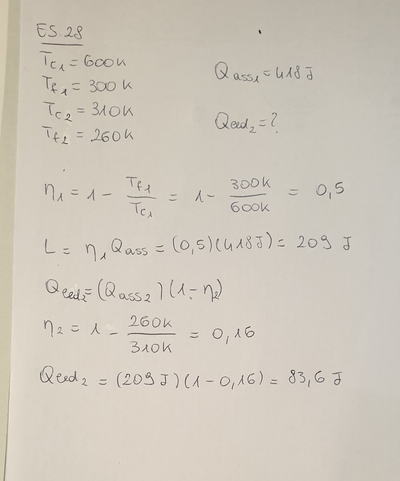 ES. 28
Tc₁ = 600K
Tf₁ = 300K
Tc₂ = 310K
Tf₂ = 260K
Qass₁ = 418 J
Qced₂ = ?
η₁ = 1 - Tf₁/Tc₁ = 1 - 300K/600K = 0,5
L = η₁ Qass = (0,5)(418J) = 209 J
Qced₂ = (Qass₂)(1 - η₂)
η₂ = 1 - 260K/310K = 0,16
Qced₂ = (209 J)(1 - 0,16) = 83,6 J